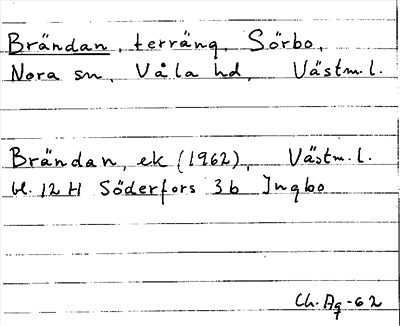 Brändan, terräng, Sörbo,
Nora sn, Våla hd, Västm.l.
Brändan, ek (1962), Västm.l.
bl. 12 H Söderfors 3 b Ingbo
Ch. Ag -62